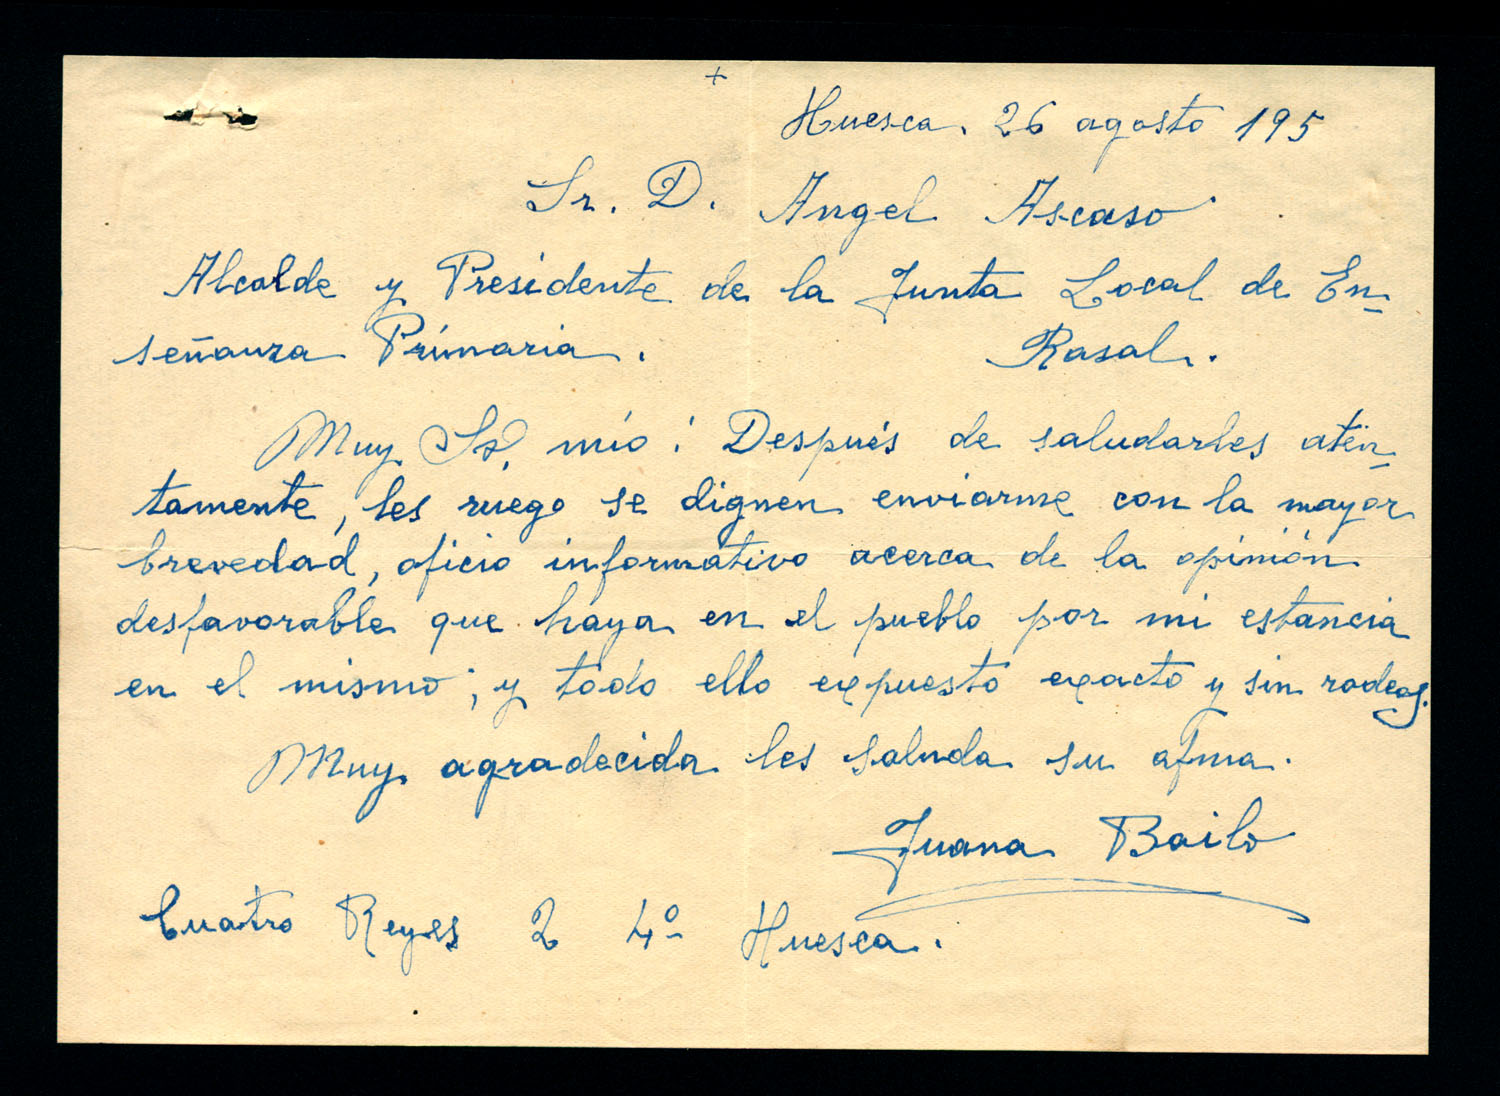 +
Huesca. 26 agosto 195
Sr. D. Angel Ascaso
Alcalde y Presidente de la Junta Local de En-
señanza Primaria. Rasal.
Muy Sr. mío: Después de saludarles aten-
tamente, les ruego se dignen enviarme con la mayor
brevedad, oficio informativo acerca de la opinión
desfavorable que haya en el pueblo por mi estancia
en el mismo; y todo ello expuesto exacto y sin rodeos.
Muy agradecida les saluda su afma.
Juana Bailo
Cuatro Reyes 2 4º Huesca.